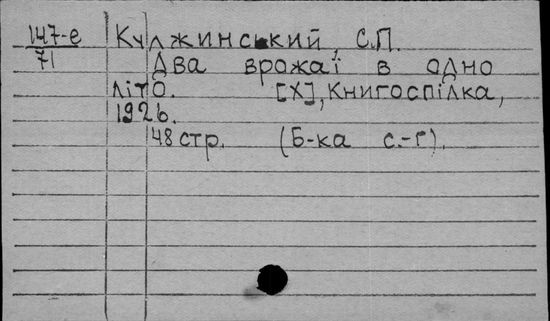 147-е Кулжинський, С.П.
71
Два врожаї в одно
літо. [Х], Книгоспілка,
1926.
48 стр. (Б-ка с.-г).